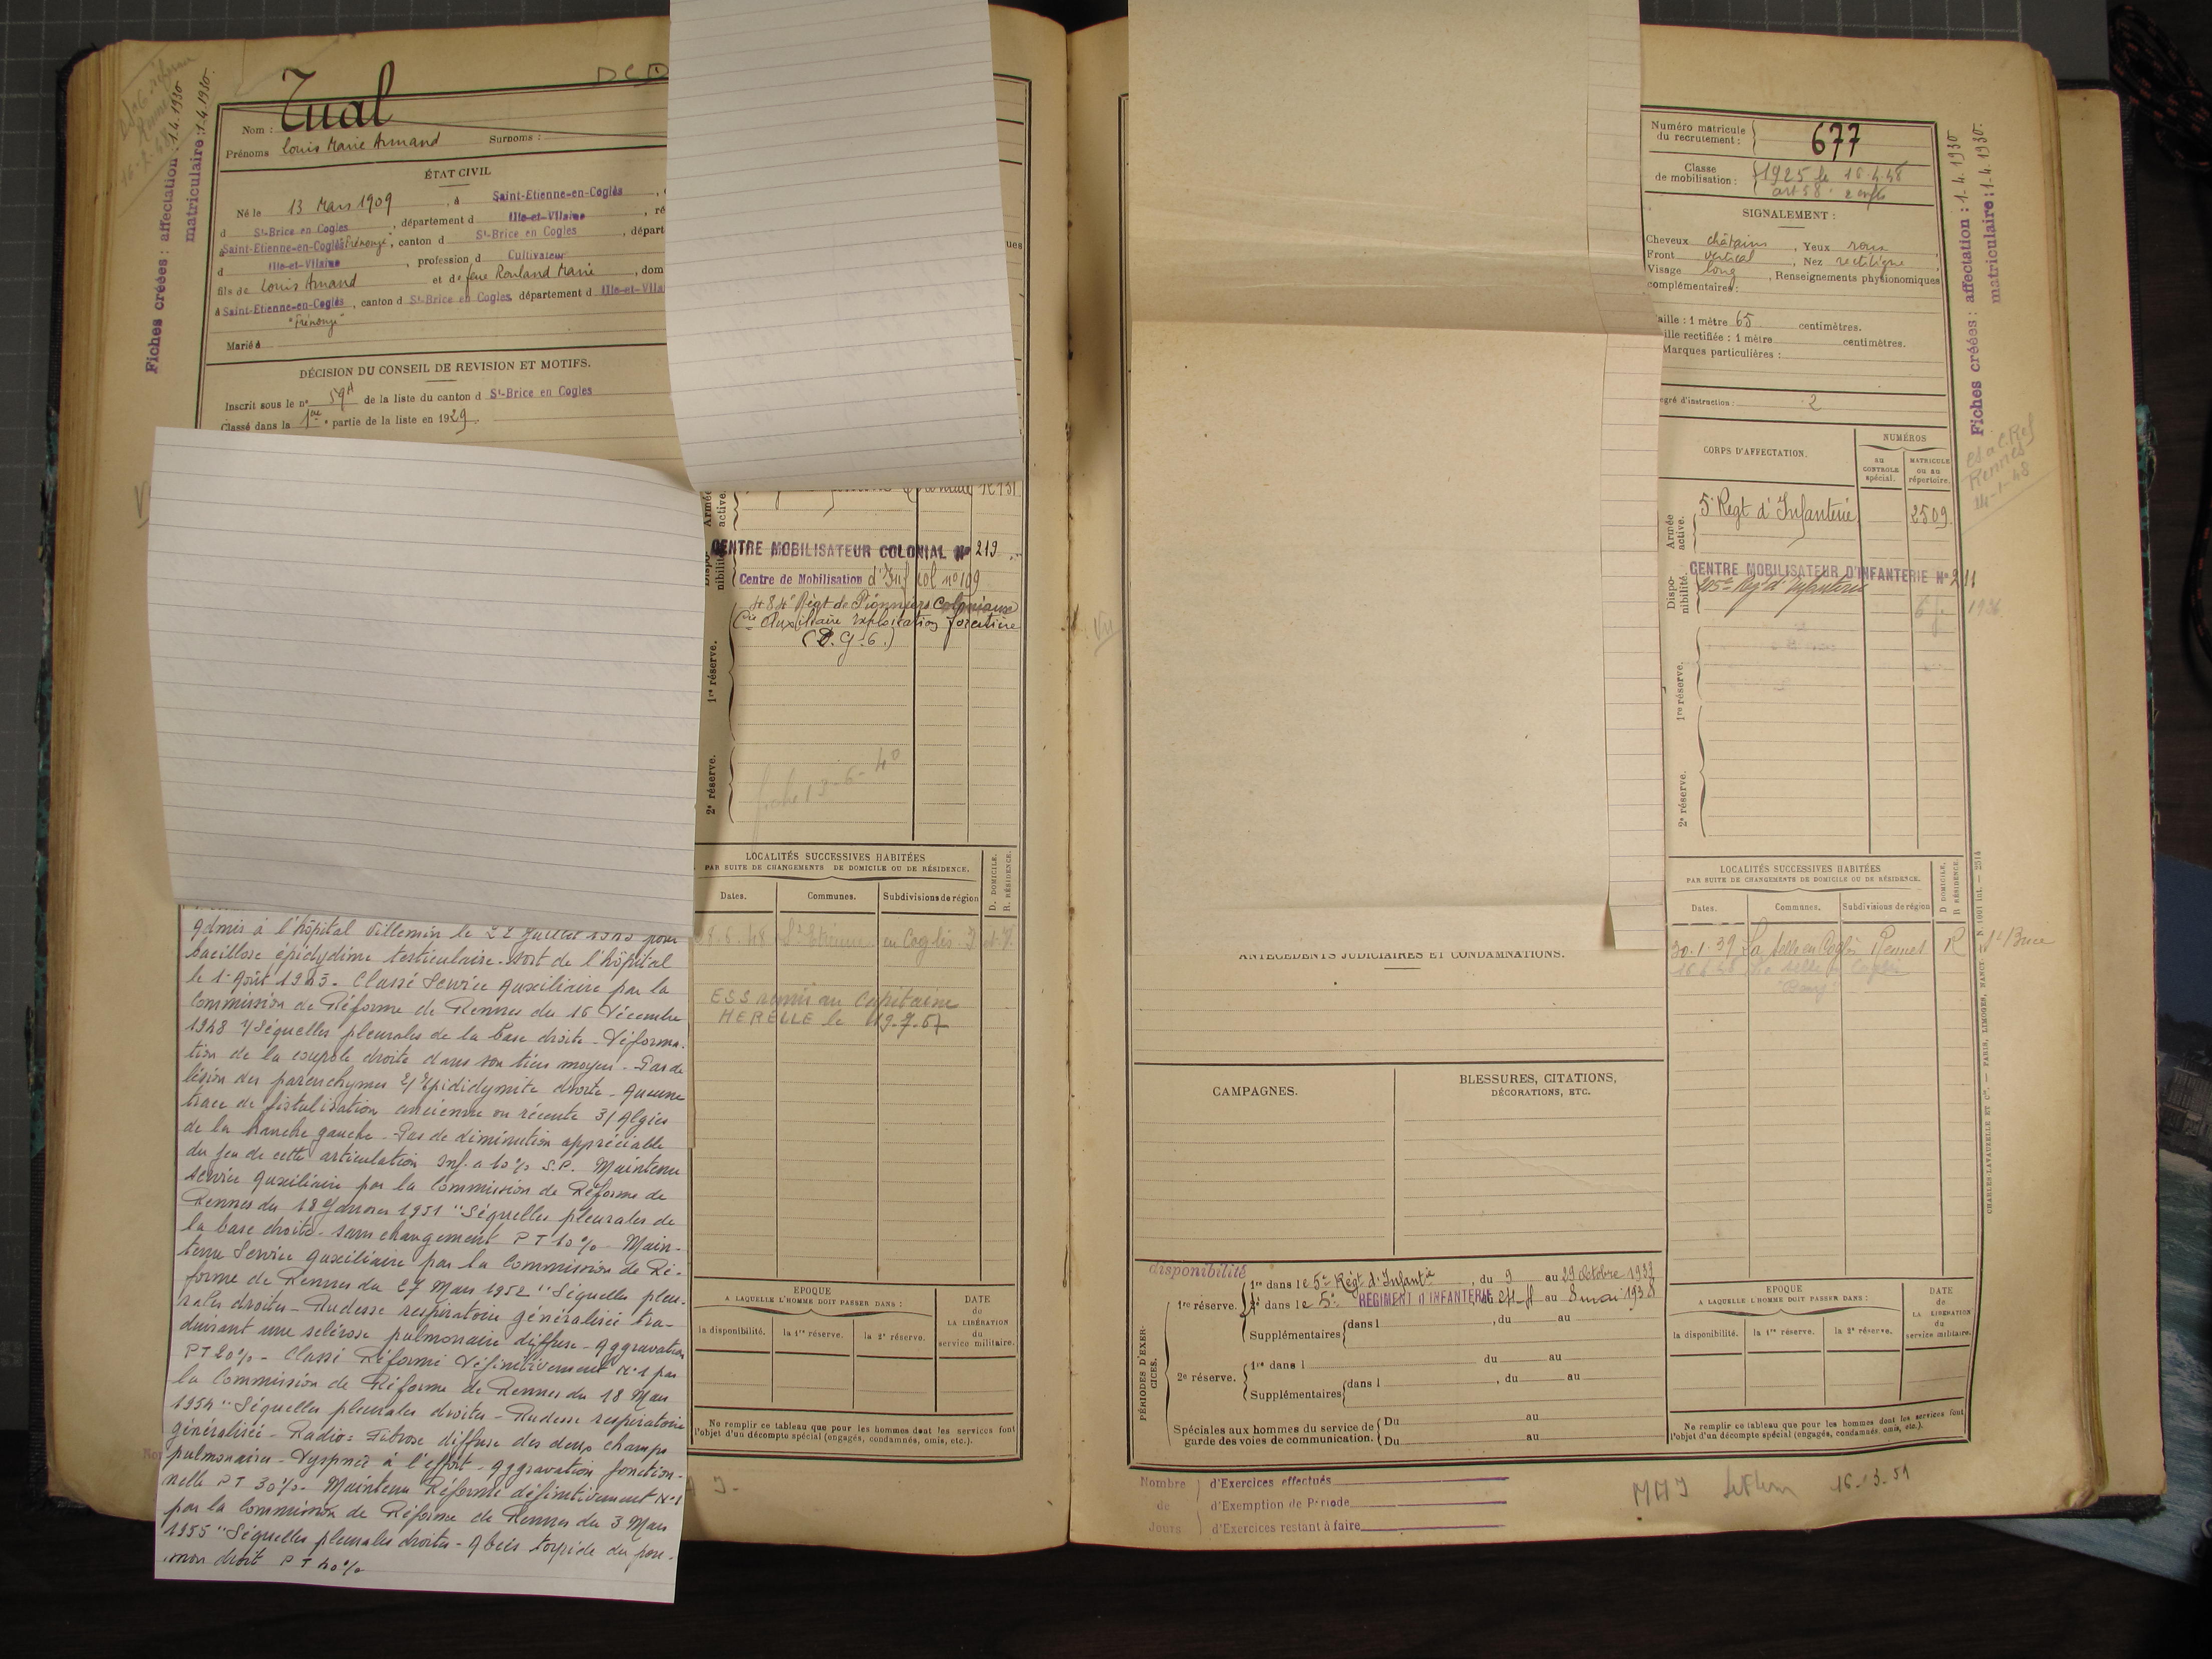 Tual
DCD
Nom :
Prénoms Louis Marie Armand Surnoms :
ÉTAT CIVIL
Né le 13 Mars 1909, à Saint-Etienne-en-Coglès
d St-Brice en Cogles, département d Ille-et-Vilaine, ré
à Saint-Etienne-en-Coglès, canton d St-Brice en Cogles, départ
d Ille-et-Vilaine, profession d Cultivateur
fils de Louis Amand et de feue Rouland Marie, dom
à Saint-Etienne-en-Coglès, canton d St-Brice en Cogles, département d Ille-et-Vilai
Marié à
DÉCISION DU CONSEIL DE REVISION ET MOTIFS.
Inscrit sous le n° 59A de la liste du canton d St-Brice en Cogles
Classé dans la 1ère partie de la liste en 1929.
Fiches créées : affectation : 1.4.1930
matriculaire : 1.4.1930.
Armée active.
CENTRE MOBILISATEUR COLONIAL N° 219
Disponibilité
Centre de Mobilisation d'Inf col n° 199
484e Régt de Pionniers Coloniaux
Cie Auxiliaire exploitation forestière
1re réserve.
2e réserve.
fiche 13-6-40
LOCALITÉS SUCCESSIVES HABITÉES
PAR SUITE DE CHANGEMENTS DE DOMICILE OU DE RÉSIDENCE.
D. DOMICILE.
R. RÉSIDENCE.
Dates. Communes. Subdivisions de région
St Etienne en Coglès
ESS remis au Capitaine
HERELLE le 19.7.67
EPOQUE
A LAQUELLE L'HOMME DOIT PASSER DANS :
DATE
de
LA LIBÉRATION
du
service militaire.
la disponibilité. la 1re réserve. la 2e réserve.
Ne remplir ce tableau que pour les hommes dont les services font
l'objet d'un décompte spécial (engagés, condamnés, omis, etc.).
Admis à l'hôpital Villemin le 22 Juillet pour
bacillose épidydime testiculaire - sort de l'hôpital
le 1er Août 1945 - Classé Service Auxiliaire par la
Commission de Réforme de Rennes du 16 Décembre
1948 1/ Séquelles pleurales de la base droite - Déforma-
tion de la coupole droite dans son tiers moyen - Pas de
lésion des parenchymes 2/ Epididymite droite - Aucune
trace de fistulisation ancienne ou récente 3/ Algies
de la hanche gauche - Pas de diminution appréciable
du jeu de cette articulation Inf. à 10% S.P. Maintenu
service Auxiliaire par la Commission de Réforme de
Rennes du 18 Janvier 1951 "Séquelles pleurales de
la base droite - sans changement PT 10% - Main-
tenu Service Auxiliaire par la Commission de Ré-
forme de Rennes du 27 Mars 1952 "Séquelles pleu-
rales droites - Rudesse respiratoire généralisée tra-
duisant une sclérose pulmonaire diffuse - Aggravation
PT 20% - Classé Réformé Définitivement N°1 par
la Commission de Réforme de Rennes du 18 Mars
1954 "Séquelles pleurales droites - Rudesse respiratoire
généralisée - Radio : Fibrose diffuse des deux champs
pulmonaires - Dyspnée à l'effort - Aggravation fonction-
nelle PT 30% - Maintenu Réformé définitivement N°1
par la Commission de Réforme de Rennes du 3 Mars
1955 "Séquelles pleurales droites - Abcès torpide du pou-
mon droit PT 40%
Numéro matricule du recrutement : 677
Classe de mobilisation : 1925 le 16.4.48
art 58. 2 enfts
SIGNALEMENT :
Cheveux châtains, Yeux roux
Front vertical, Nez rectiligne
Visage long, Renseignements physionomiques
complémentaires :
aille : 1 mètre 65 centimètres.
ille rectifiée : 1 mètre centimètres.
Marques particulières :
egré d'instruction : 2
CORPS D'AFFECTATION.
NUMÉROS
AU CONTROLE spécial.
MATRICULE OU AU répertoire.
Armée active.
5e Régt d'Infanterie 2509
Disponibilité.
CENTRE MOBILISATEUR D'INFANTERIE N° 211
1re réserve.
2e réserve.
Fiches créées : affectation : 1.4.1930
matriculaire : 1.4.1930.
Rennes
14-1-48
LOCALITÉS SUCCESSIVES HABITÉES
PAR SUITE DE CHANGEMENTS DE DOMICILE OU DE RÉSIDENCE.
D DOMICILE.
R RÉSIDENCE.
Dates. Communes. Subdivisions de région
30.1.39 La Selle en Coglès Rennes R St Brice
ANTÉCÉDENTS JUDICIAIRES ET CONDAMNATIONS.
CAMPAGNES.
BLESSURES, CITATIONS,
DÉCORATIONS, ETC.
PÉRIODES D'EXERCICES.
disponibilité
1re réserve.
1re dans le 5e Régt d'Infantie, du 9 au 29 Octobre 1933
dans le 5e REGIMENT D'INFANTERIE au 8 mai 1938
Supplémentaires dans l , du au
2e réserve.
1re dans l du au
Supplémentaires dans l , du au
Spéciales aux hommes du service de
garde des voies de communication.
Du au
Du au
Nombre de Jours
d'Exercices effectués
d'Exemption de Période
d'Exercices restant à faire
EPOQUE
A LAQUELLE L'HOMME DOIT PASSER DANS :
DATE
de
LA LIBÉRATION
du
service militaire.
la disponibilité. la 1re réserve. la 2e réserve.
Ne remplir ce tableau que pour les hommes dont les services font
l'objet d'un décompte spécial (engagés, condamnés, omis, etc.).
CHARLES-LAVAUZELLE ET Cie. — PARIS, LIMOGES, NANCY.
16-3-51